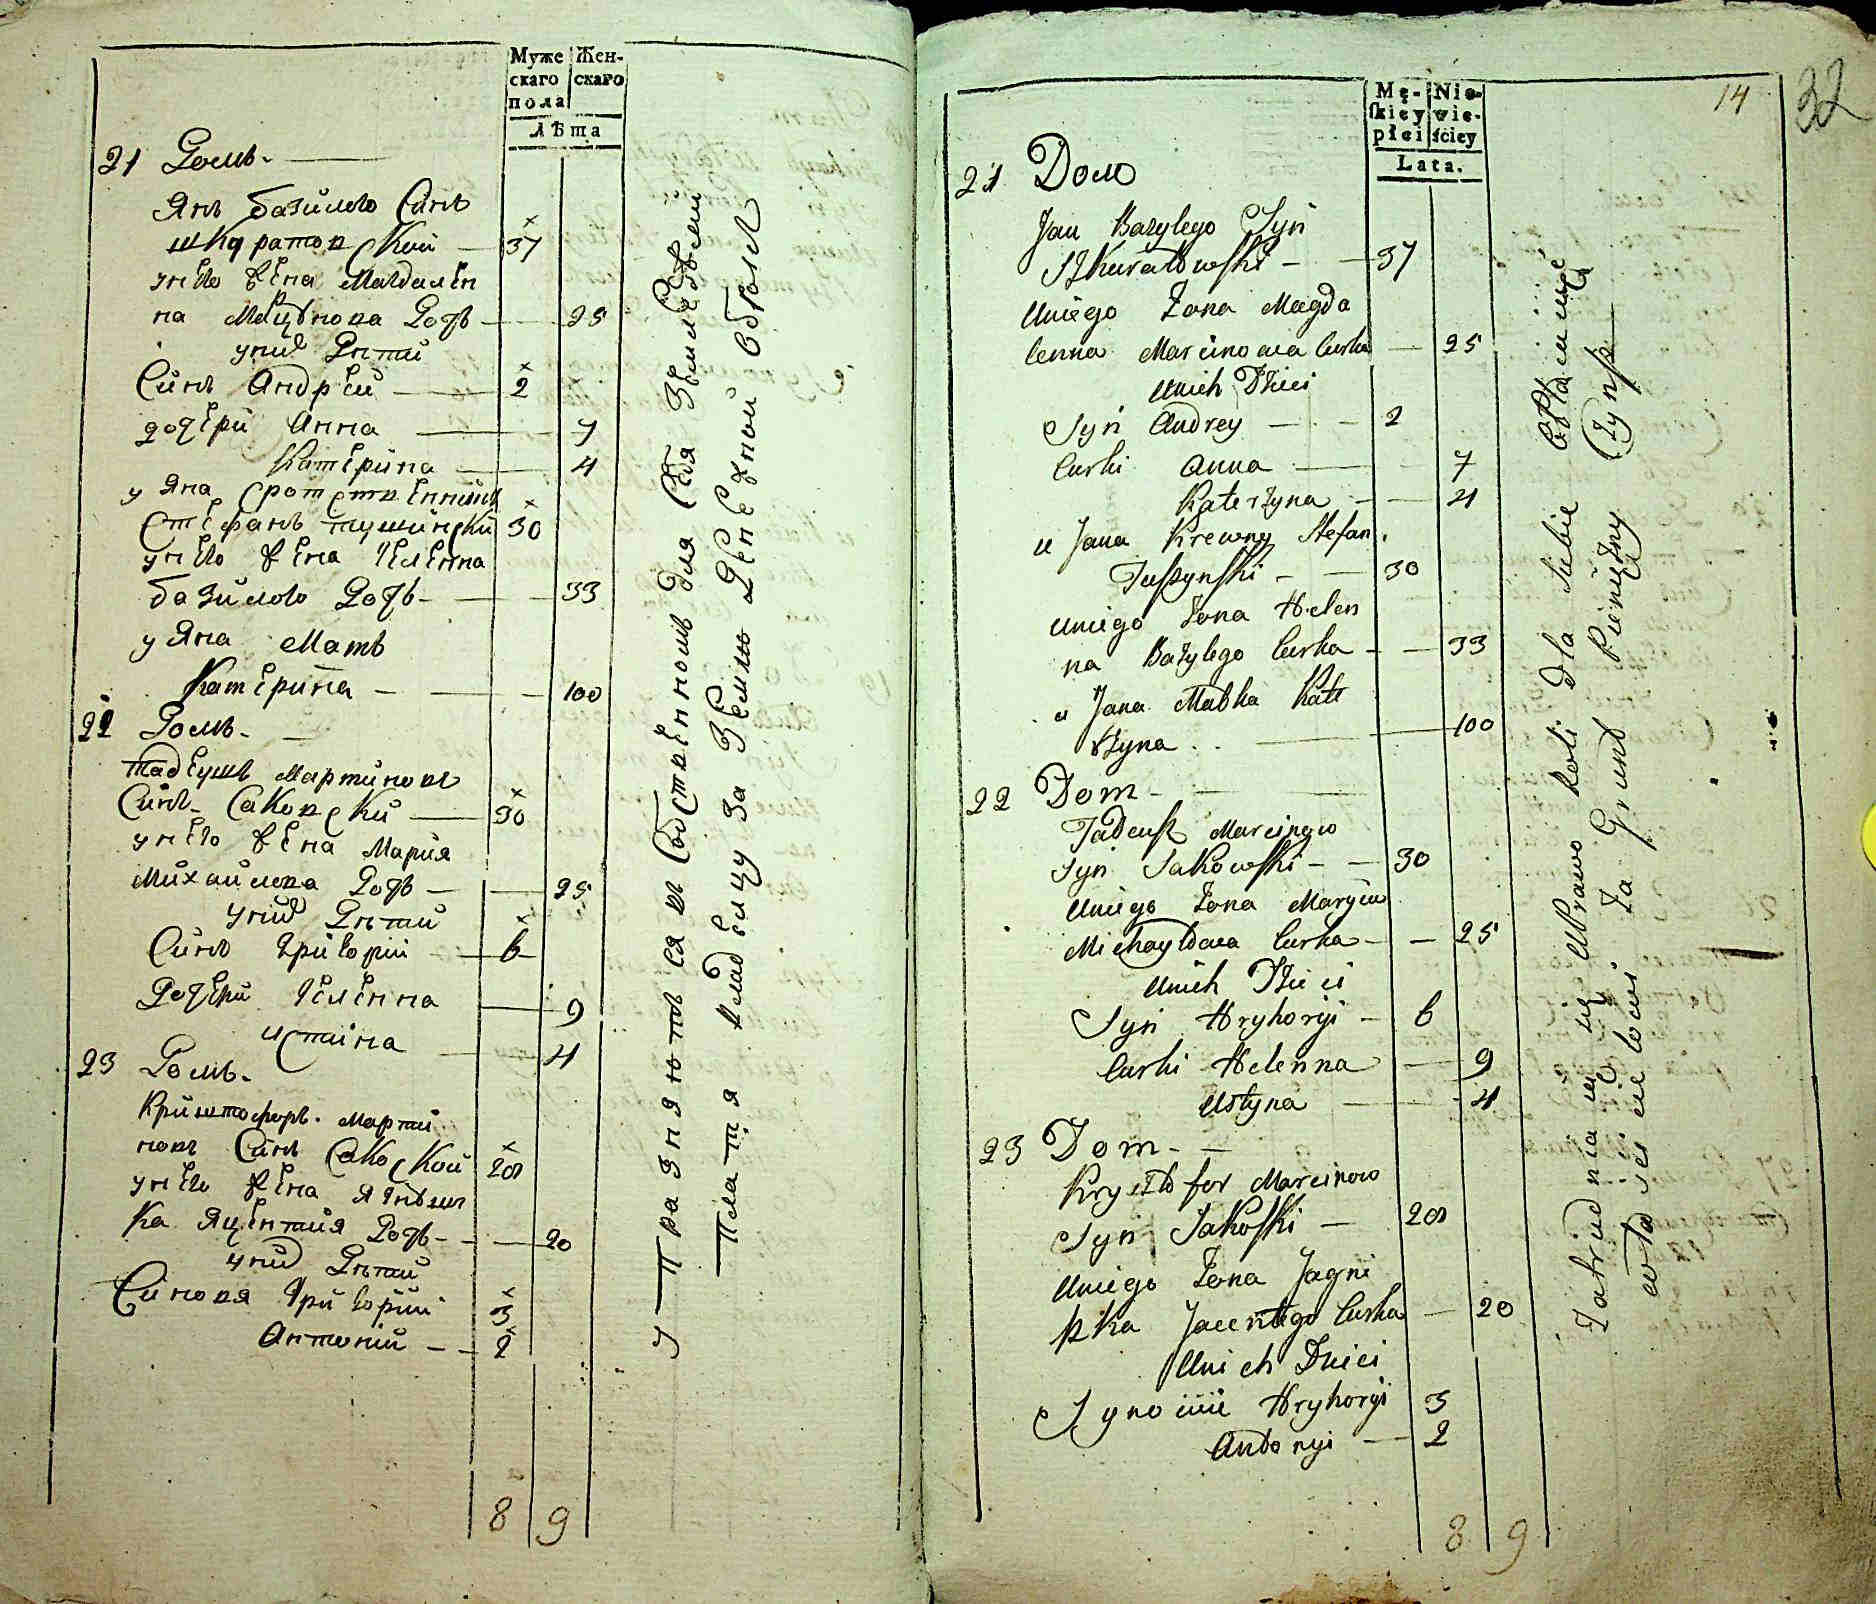 Муже Жен-
скаго скаго
пола
Лѣта
21 Домъ.
Янъ базилого Синъ
шкуратовский 37
унего жена Магдален
на Марцѣнова Дочь 25
уних Дѣти
Синъ Андрей 2
дочери Анна 7
Катерина 4
у Яна Сротственники
Стефанъ тушинский 30
унего жена Гелена
базилого Дочь 33
у Яна Мать
Катерина 100
22 Домъ.
Тадеушъ Мартиновъ
Синъ Саковский 30
унего жена Мария
Михайлова Дочь 25
уних Дѣти
Синъ Григорий 6
Дочери Геленна 9
Устина 4
23 Домъ.
Криштофоръ Марти
новъ Синъ Сакоский 28
унего жена Ягнѣшка
ка Яцентия Дочь 20
уних Дѣти
Синовя Григорий 3
Антоний 2
8 9
Упражняются в Собственномъ для Себя Земледѣлии
Платя владелцу за Землю Денежной Оброкъ
14 32
Mę- Nie-
ſkiey wie-
płci ściey
Lata.
21 Dom
Jan Bazylego Syn
Szkuratowski 37
Uniego Zona Magda
lenna Marcinowa Curka 25
Unich Dzieci
Syn Andrey 2
Curki Anna 7
Katerzyna 4
u Jana Krewny Stefan
Tuszynski 30
uniego Zona Helen
na Bazylego Curka 33
u Jana Matka Kate
rzyna 100
22 Dom
Tadeusz Marcinow
Syn Sakowski 30
Uniego Zona Maryia
Michayłowa Curka 25
Unich Dzieci
Syn Hryhoryi 6
Curki Helenna 9
Ustyna 4
23 Dom
Krysztofor Marcinow
Syn Sakoski 28
Uniego Zona Jagni
szka Jacentego Curka 20
Unich Dzieci
Synowie Hryhoryi 3
Antonyi 2
8 9
Zatrudniaią się uprawą Roli dla Siebie Opłacaiąc
właścicielowi Za Grunt Pieniężny Czynsz